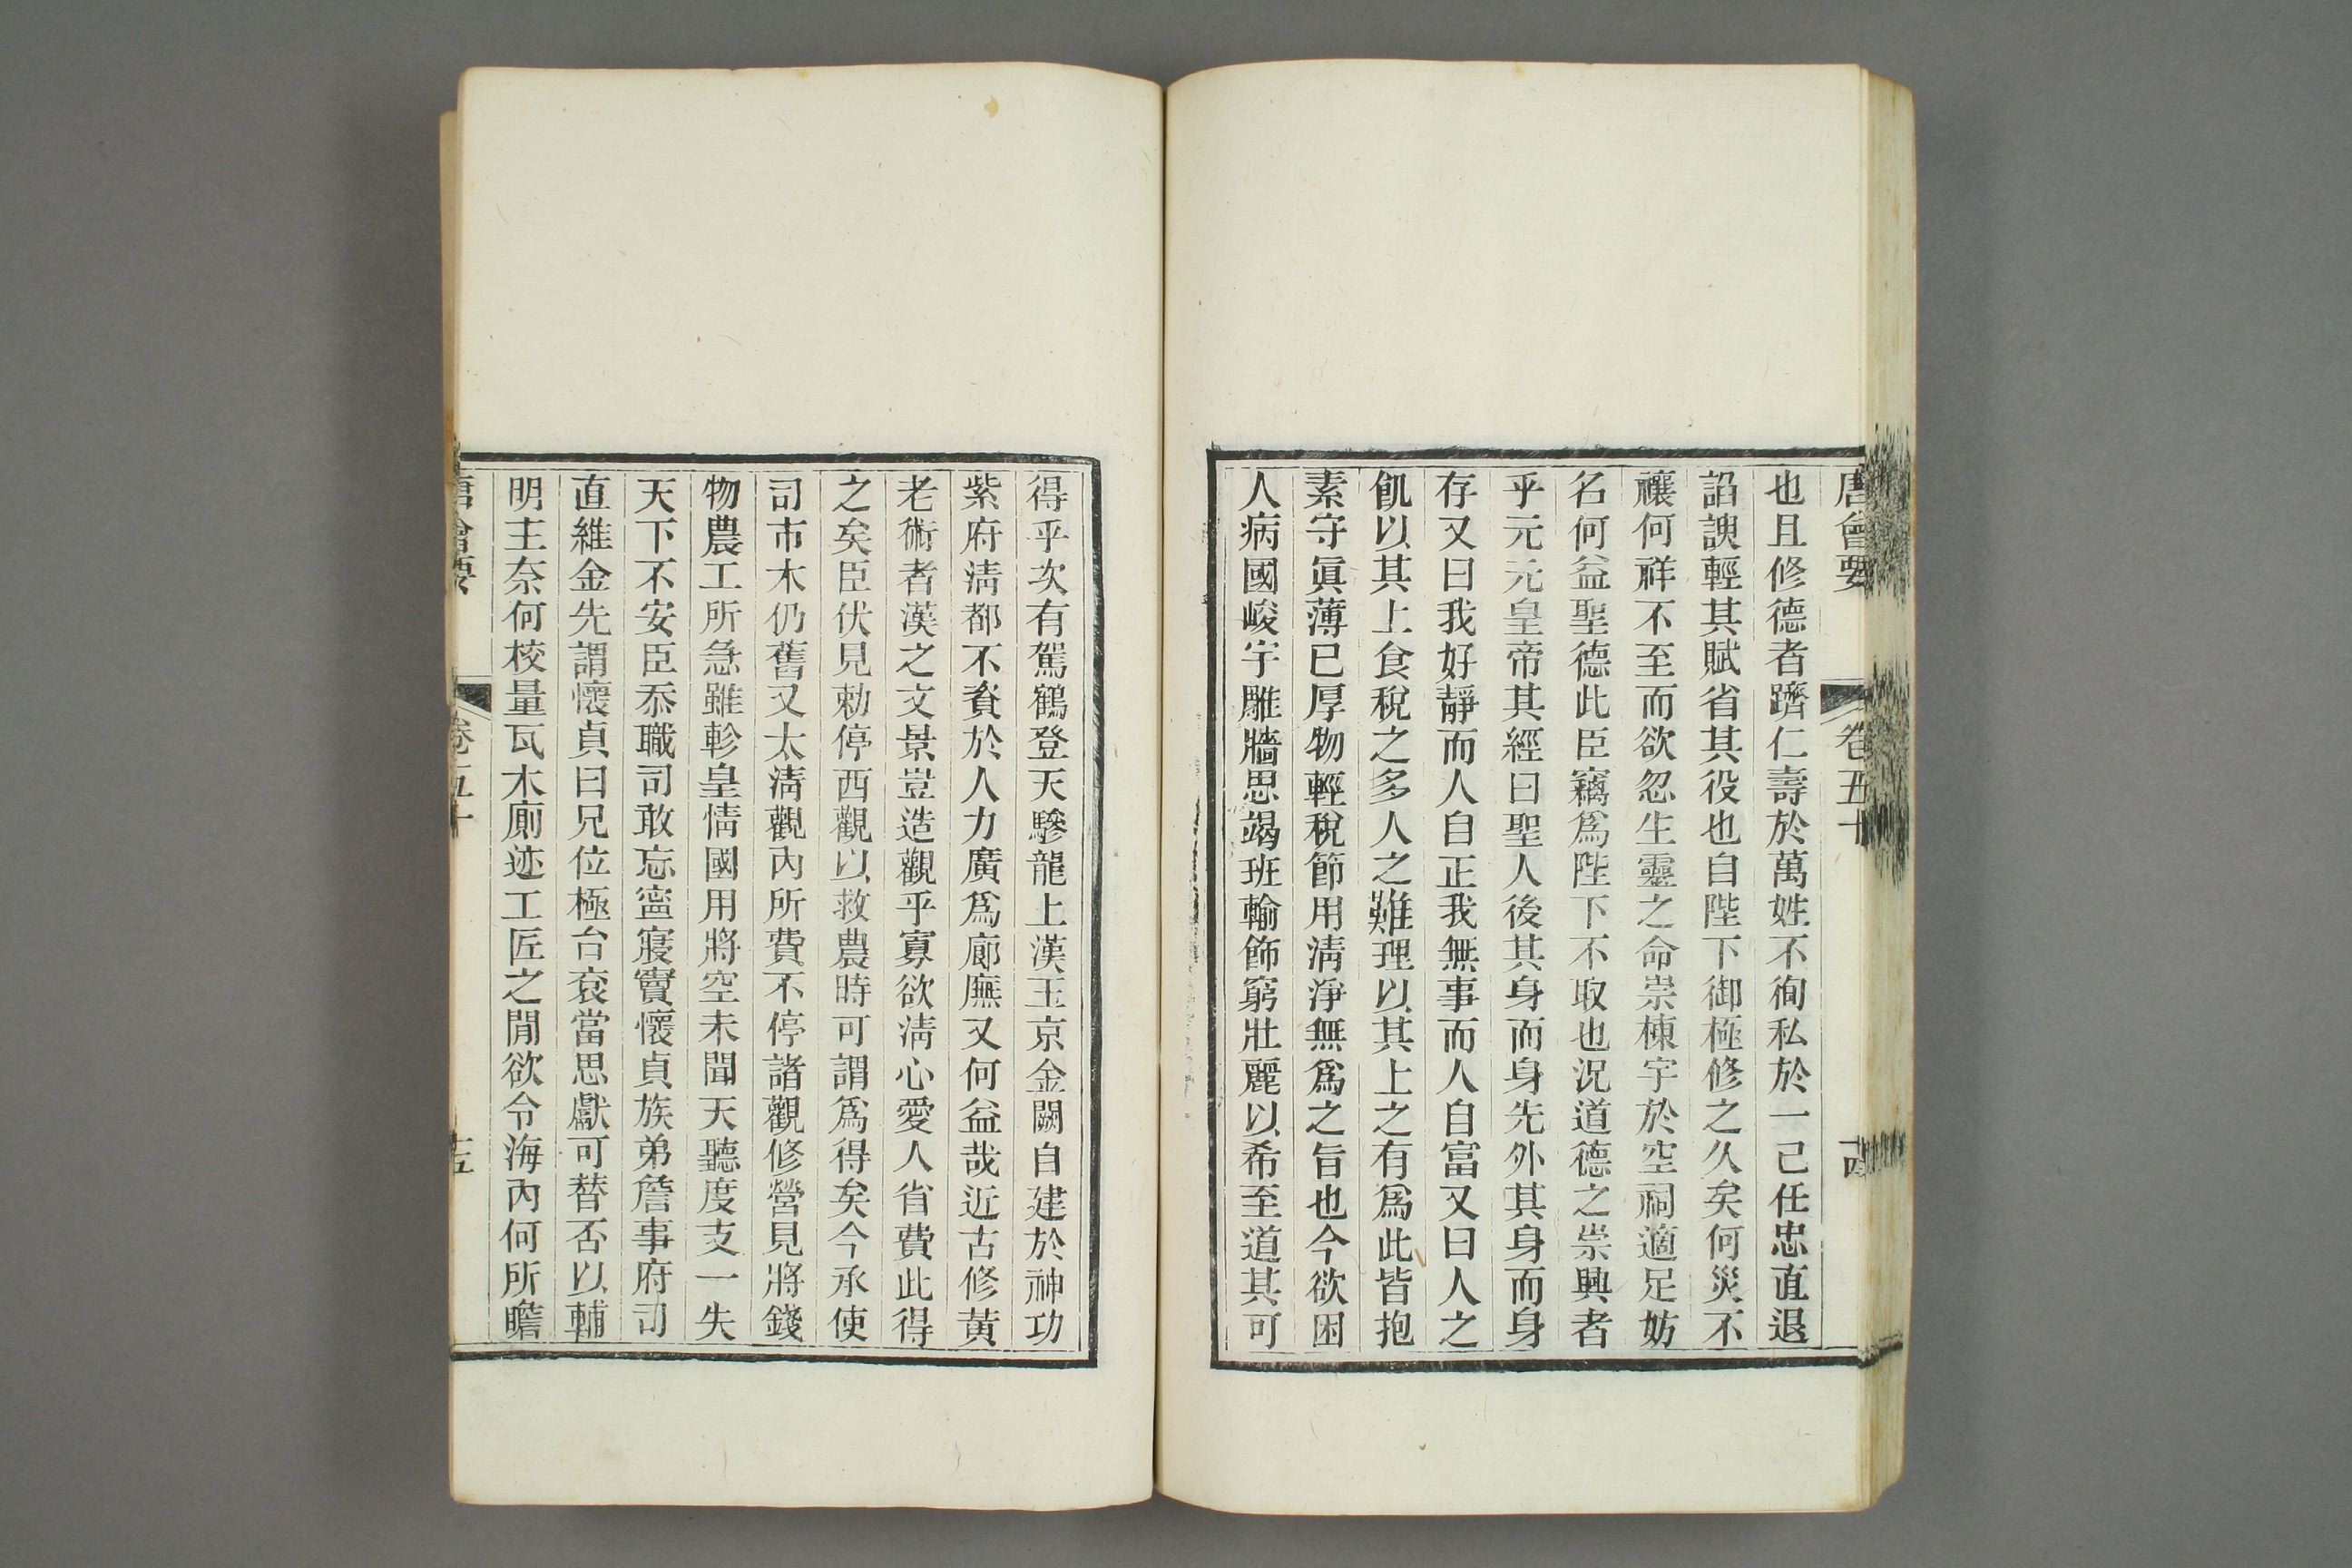 唐會要 卷五十 十四
也且修德者躋仁壽於萬姓不徇私於一己任忠直退
諂諛輕其賦省其役也自陛下御極修之久矣何災不
禳何祥不至而欲忽生靈之命崇棟宇於空祠適足妨
名何益聖德此臣竊爲陛下不取也況道德之崇興者
乎元元皇帝其經曰聖人後其身而身先外其身而身
存又曰我好靜而人自正我無事而人自富又曰人之
飢以其上食稅之多人之難理以其上之有爲此皆抱
素守眞薄已厚物輕稅節用清淨無爲之旨也今欲困
人病國峻宇雕牆思竭班輸飾窮壯麗以希至道其可
得乎次有駕鶴登天驂龍上漢玉京金闕自建於神功
紫府淸都不資於人力廣爲廊廡又何益哉近古修黃
老術者漢之文景豈造觀乎寡欲淸心愛人省費此得
之矣臣伏見勅停西觀以救農時可謂爲得矣今承使
司市木仍舊又太淸觀內所費不停諸觀修營見將錢
物農工所急雖軫皇情國用將空未聞天聽度支一失
天下不安臣忝職司敢忘寍寢竇懷貞族弟詹事府司
直維金先謂懷貞曰兄位極台袞當思獻可替否以輔
明主奈何校量瓦木廁迹工匠之閒欲令海內何所瞻
唐會要 卷五十 十五